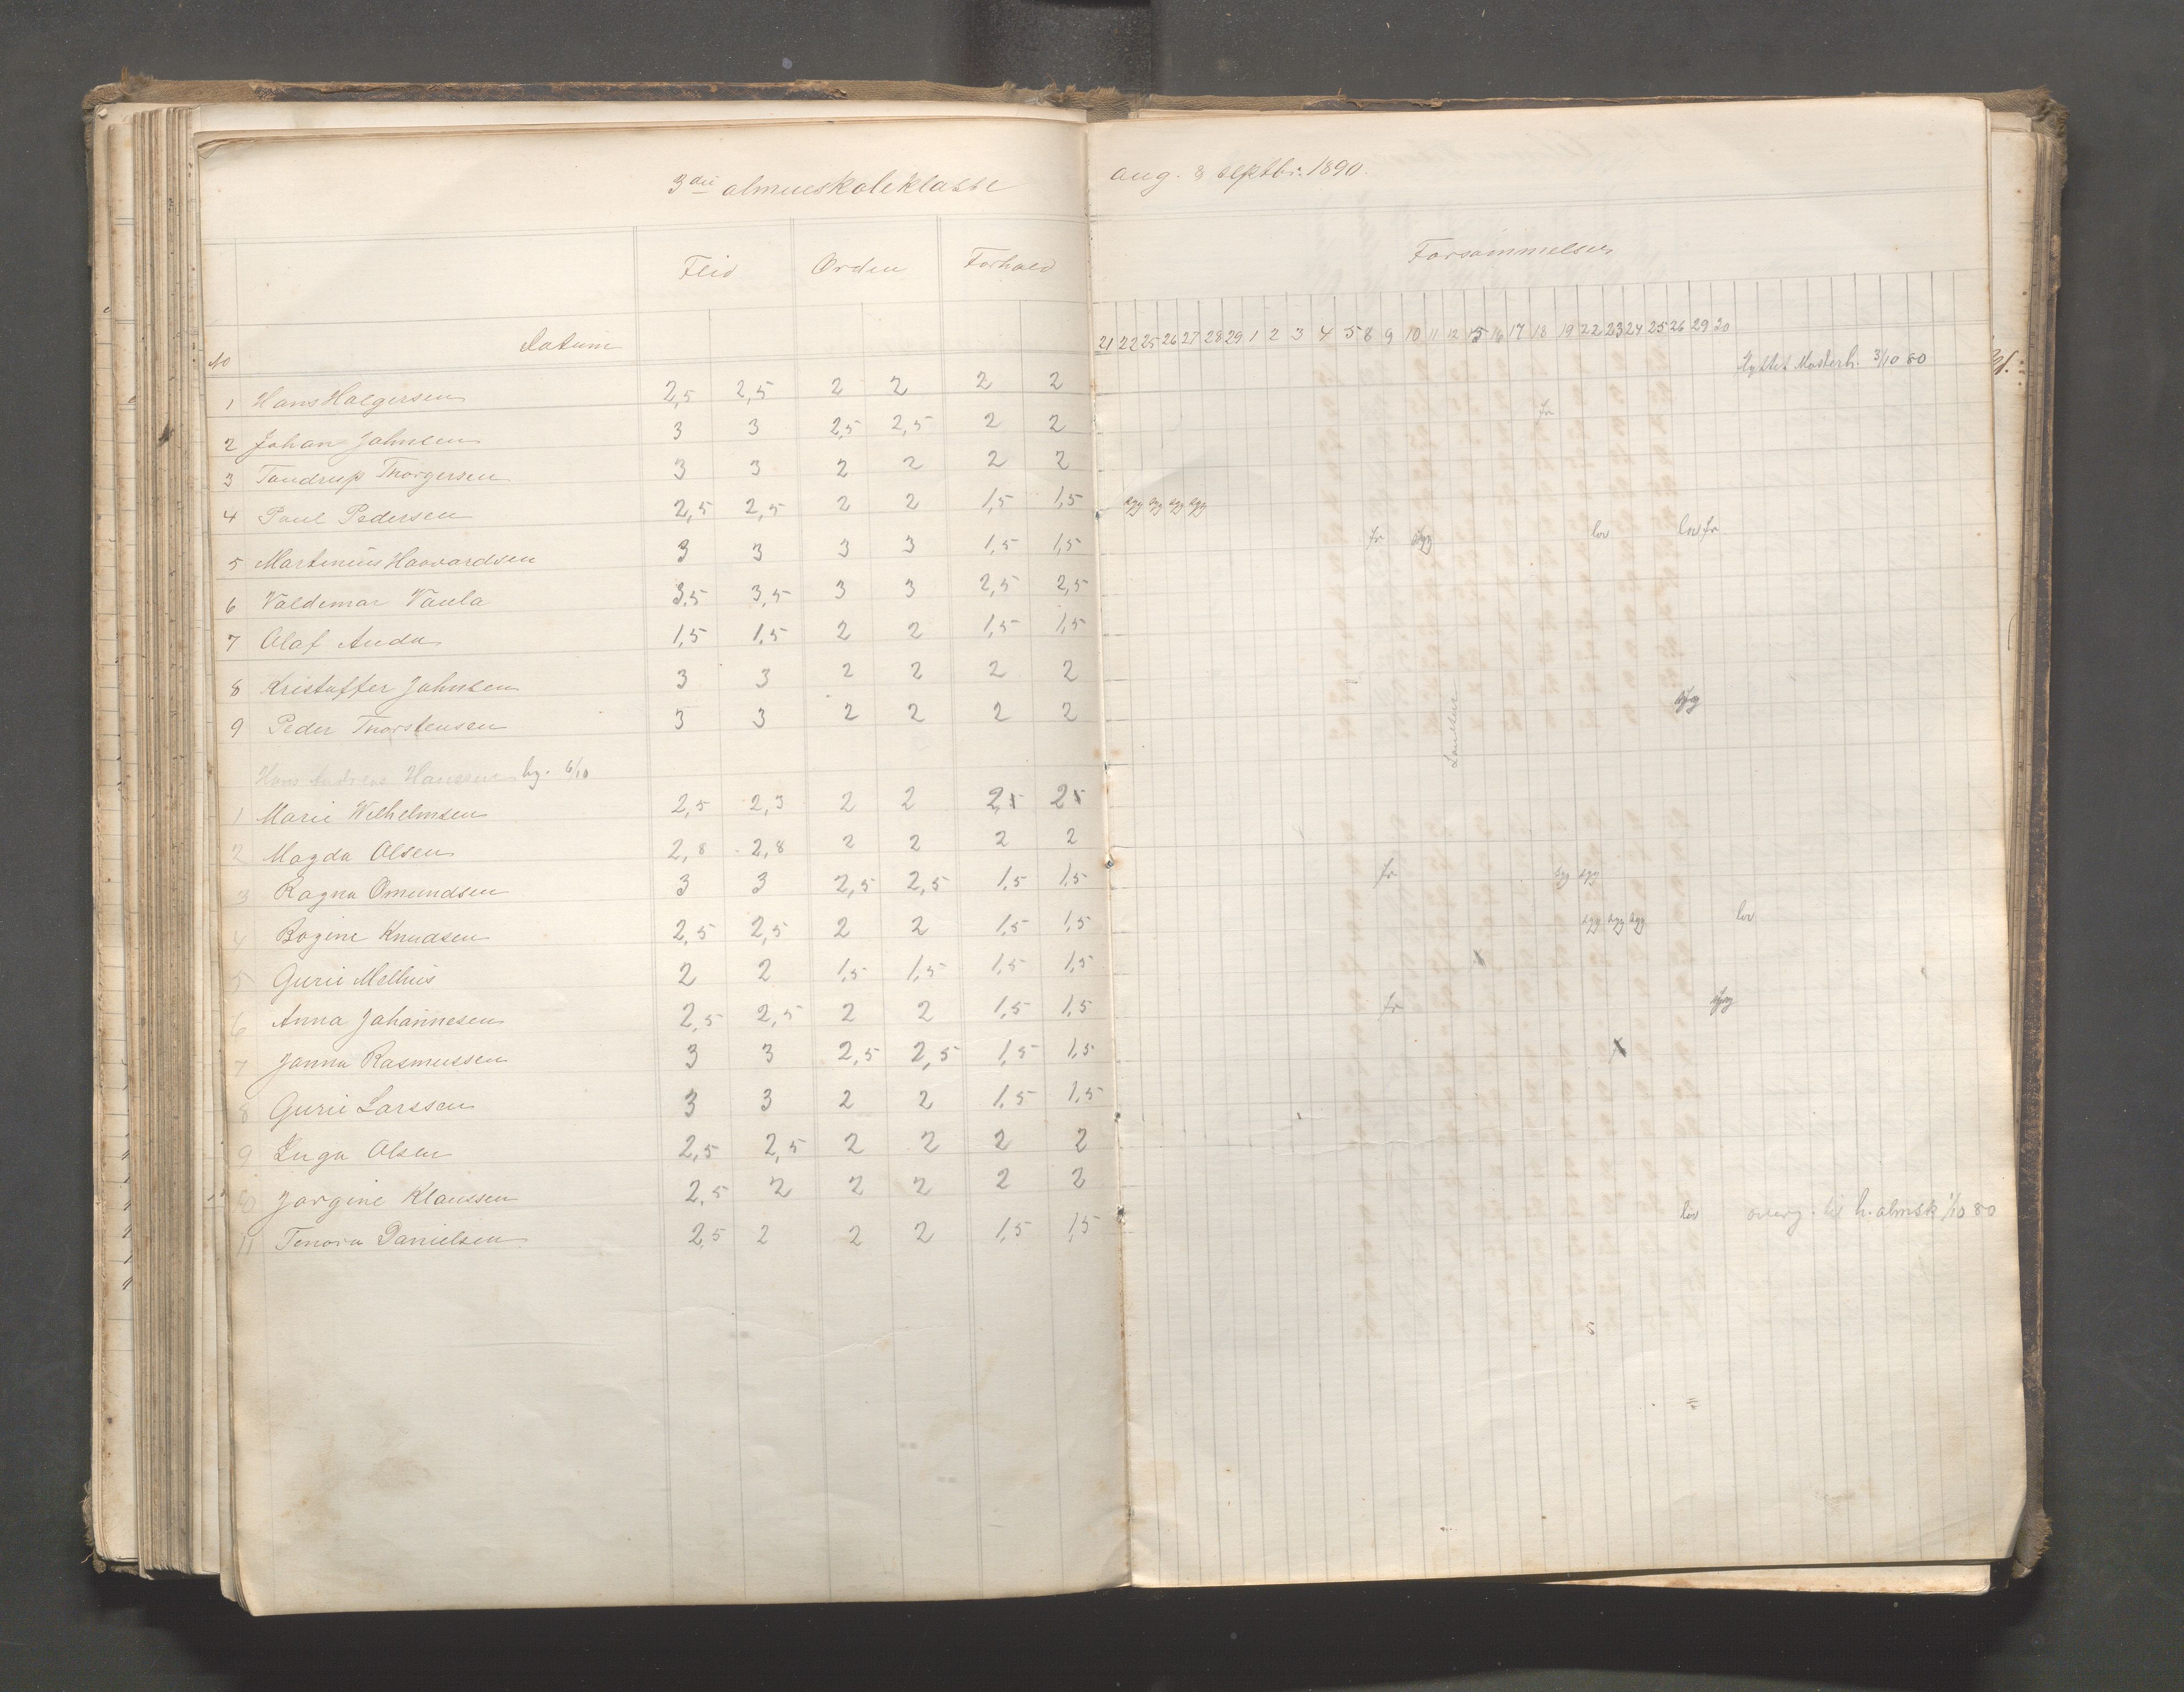 3die almueskoleklasse
aug. & septbr. 1890.
Flid Orden Forhold
Forsømmelser
No Datum
21 22 25 26 27 28 29 1 2 3 4 5 8 9 10 11 12 15 16 17 18 19 22 23 24 25 26 29 30
1 Hans Holgersen 2,5 2,5 2 2 2 2 3/10 80
2 Johan Johnsen 3 3 2,5 2,5 2 2 fr
3 Tandrup Thorgersen 3 3 2 2 2 2
4 Paul Pedersen 2,5 2,5 2 2 1,5 1,5 syg syg syg syg
5 Martinius Haavardsen 3 3 3 3 1,5 1,5 fr syg lov lov fr
6 Valdemar Vaula 3,5 3,5 3 3 2,5 2,5
7 Olaf Auda 1,5 1,5 2 2 1,5 1,5
8 Kristoffer Johnsen 3 3 2 2 2 2
9 Peder Thorstensen 3 3 2 2 2 2 syg
Hans Andreas Hanssen 6/10
1 Marie Wilhelmsen 2,5 2,3 2 2 2,5 2,5
2 Magda Olsen 2,8 2,8 2 2 2 2
3 Ragna Omundsen 3 3 2,5 2,5 1,5 1,5 fr syg syg
4 Bogine Knudsen 2,5 2,5 2 2 1,5 1,5 syg syg syg lov
5 Gurie Melhus 2 2 1,5 1,5 1,5 1,5
6 Anna Johannesen 2,5 2,5 2 2 1,5 1,5 fr syg
7 Janna Rasmussen 3 3 2,5 2,5 1,5 1,5
8 Gurie Larssen 3 3 2 2 1,5 1,5
9 Inga Olsen 2,5 2,5 2 2 2 2
10 Jorgine Klaussen 2,5 2 2 2 2 2
11 Tenora Danielsen 2,5 2 2 2 1,5 1,5 lov overg. til h. almsk 1/10 80